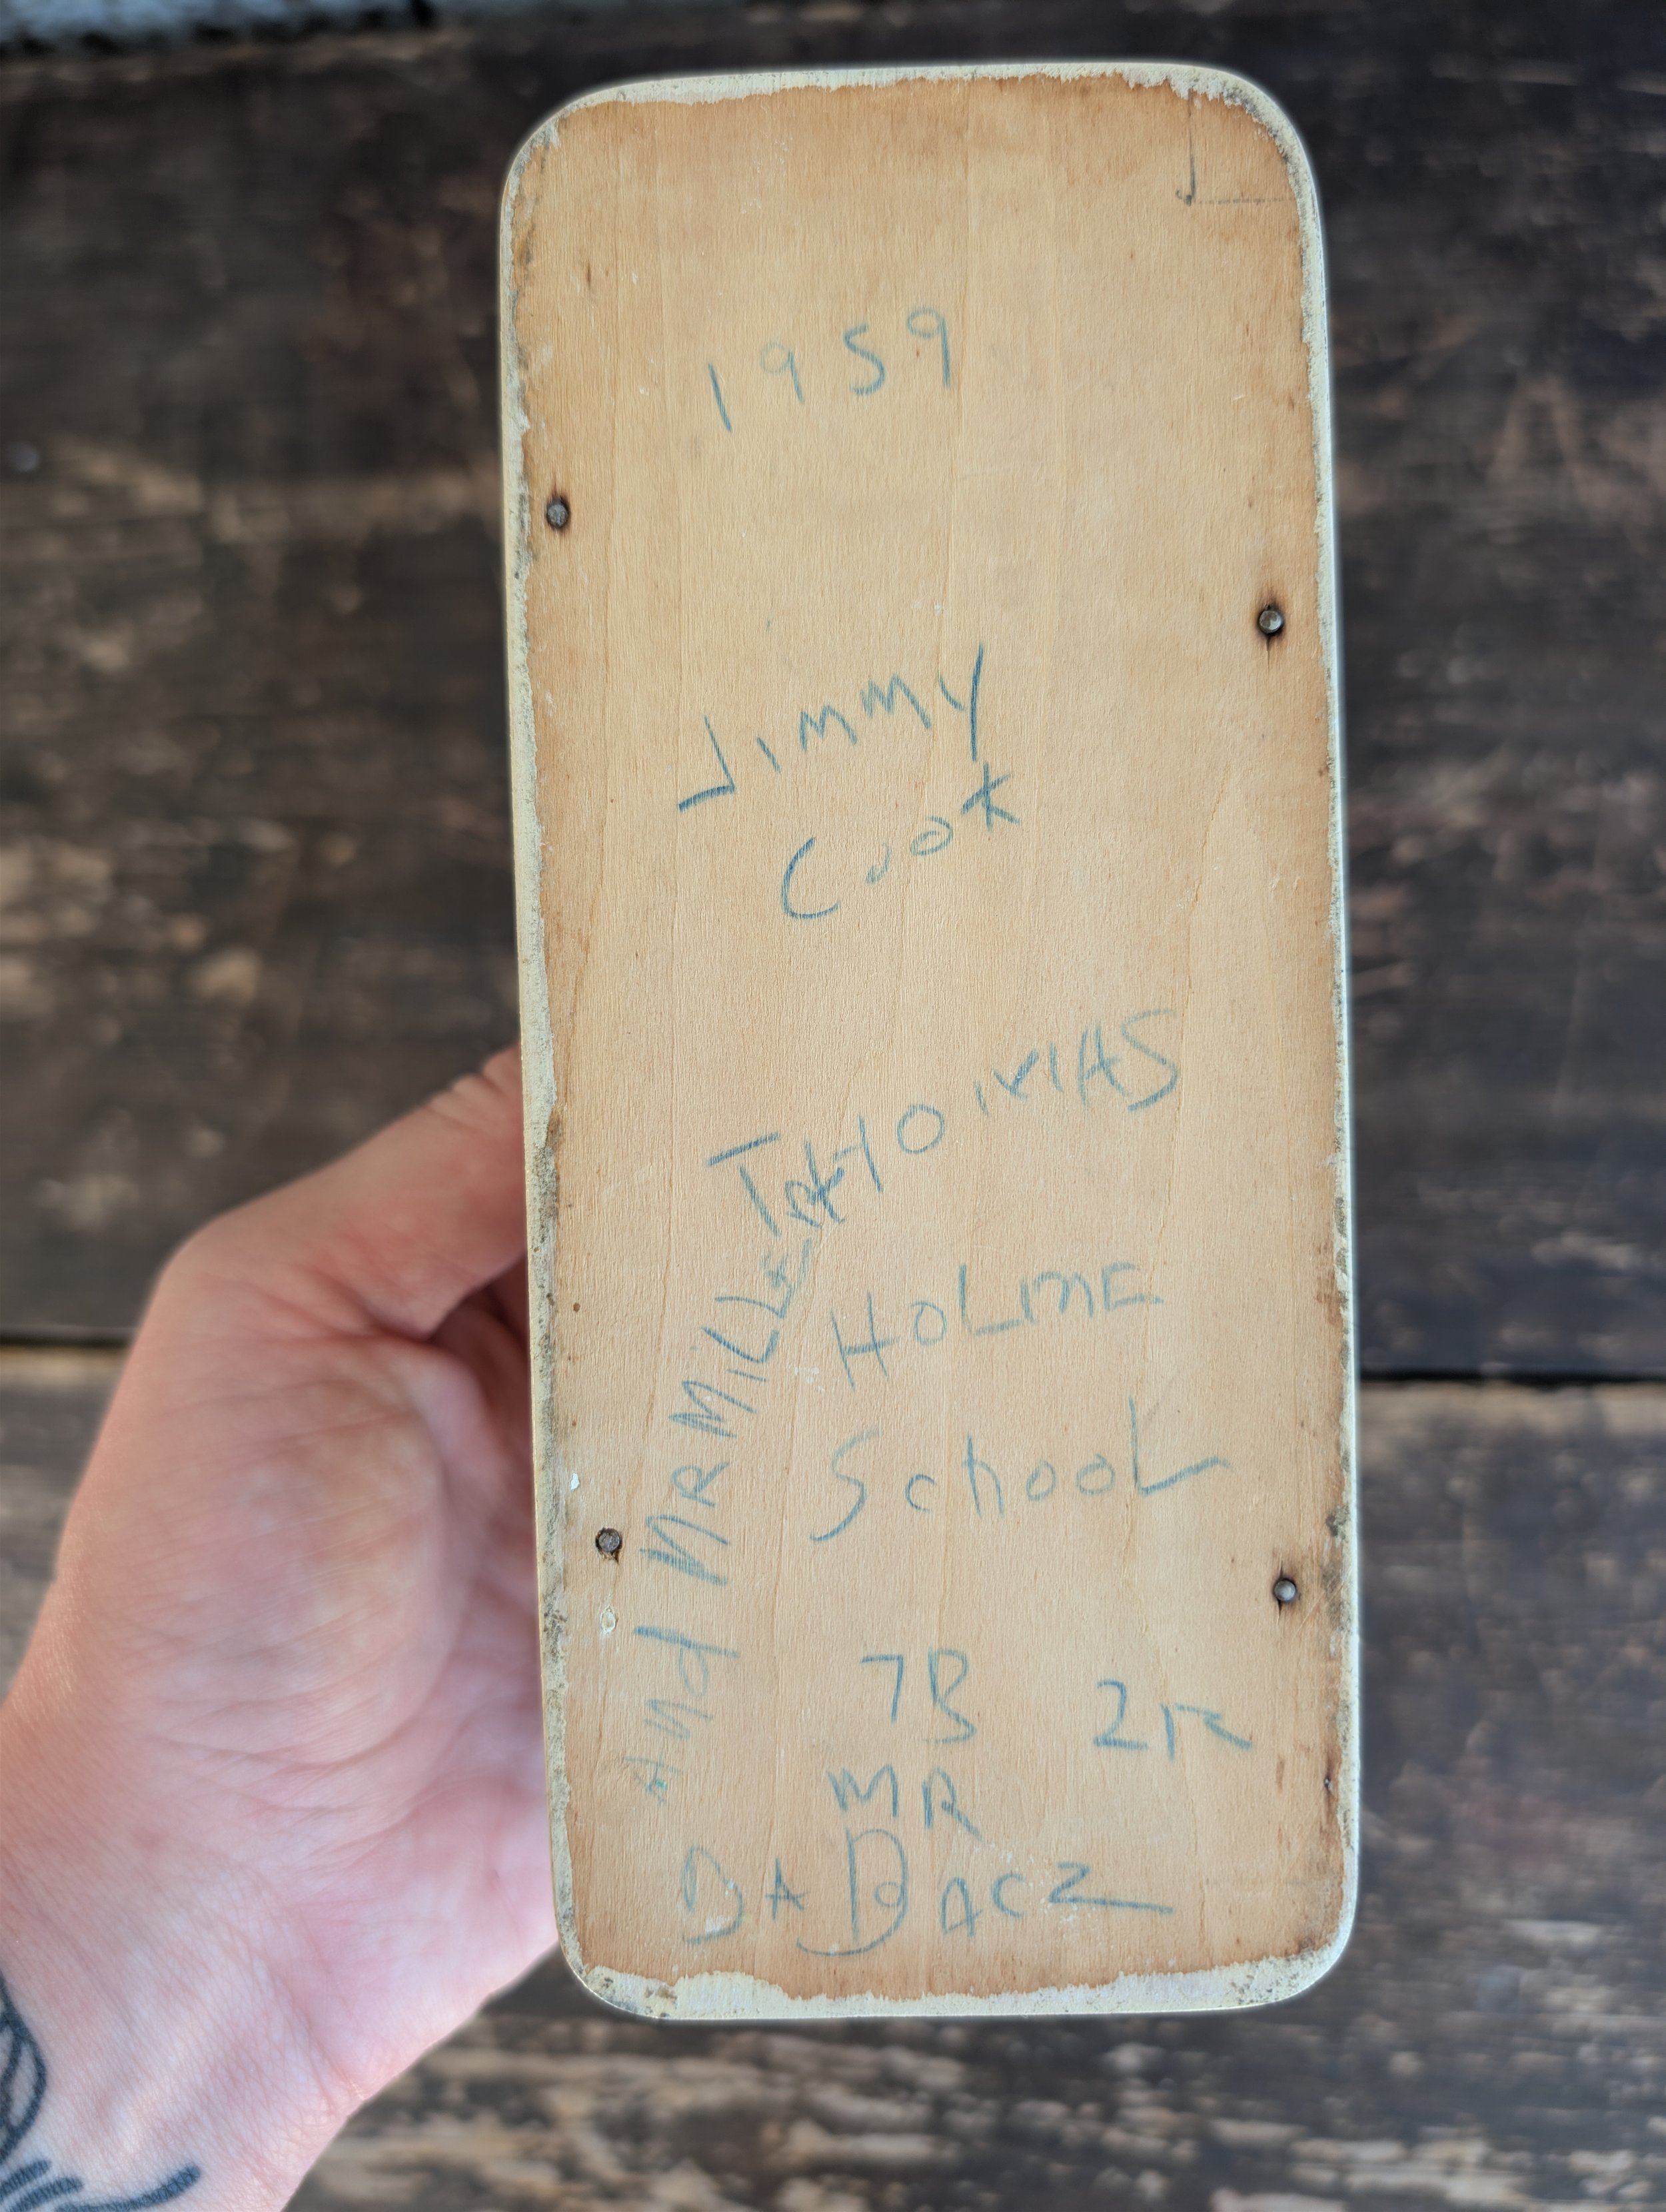 1959
JIMMY
COOK
THOMAS
HOLME
SchooL
7B 2R
MR
BABACZ
And MR MILLER